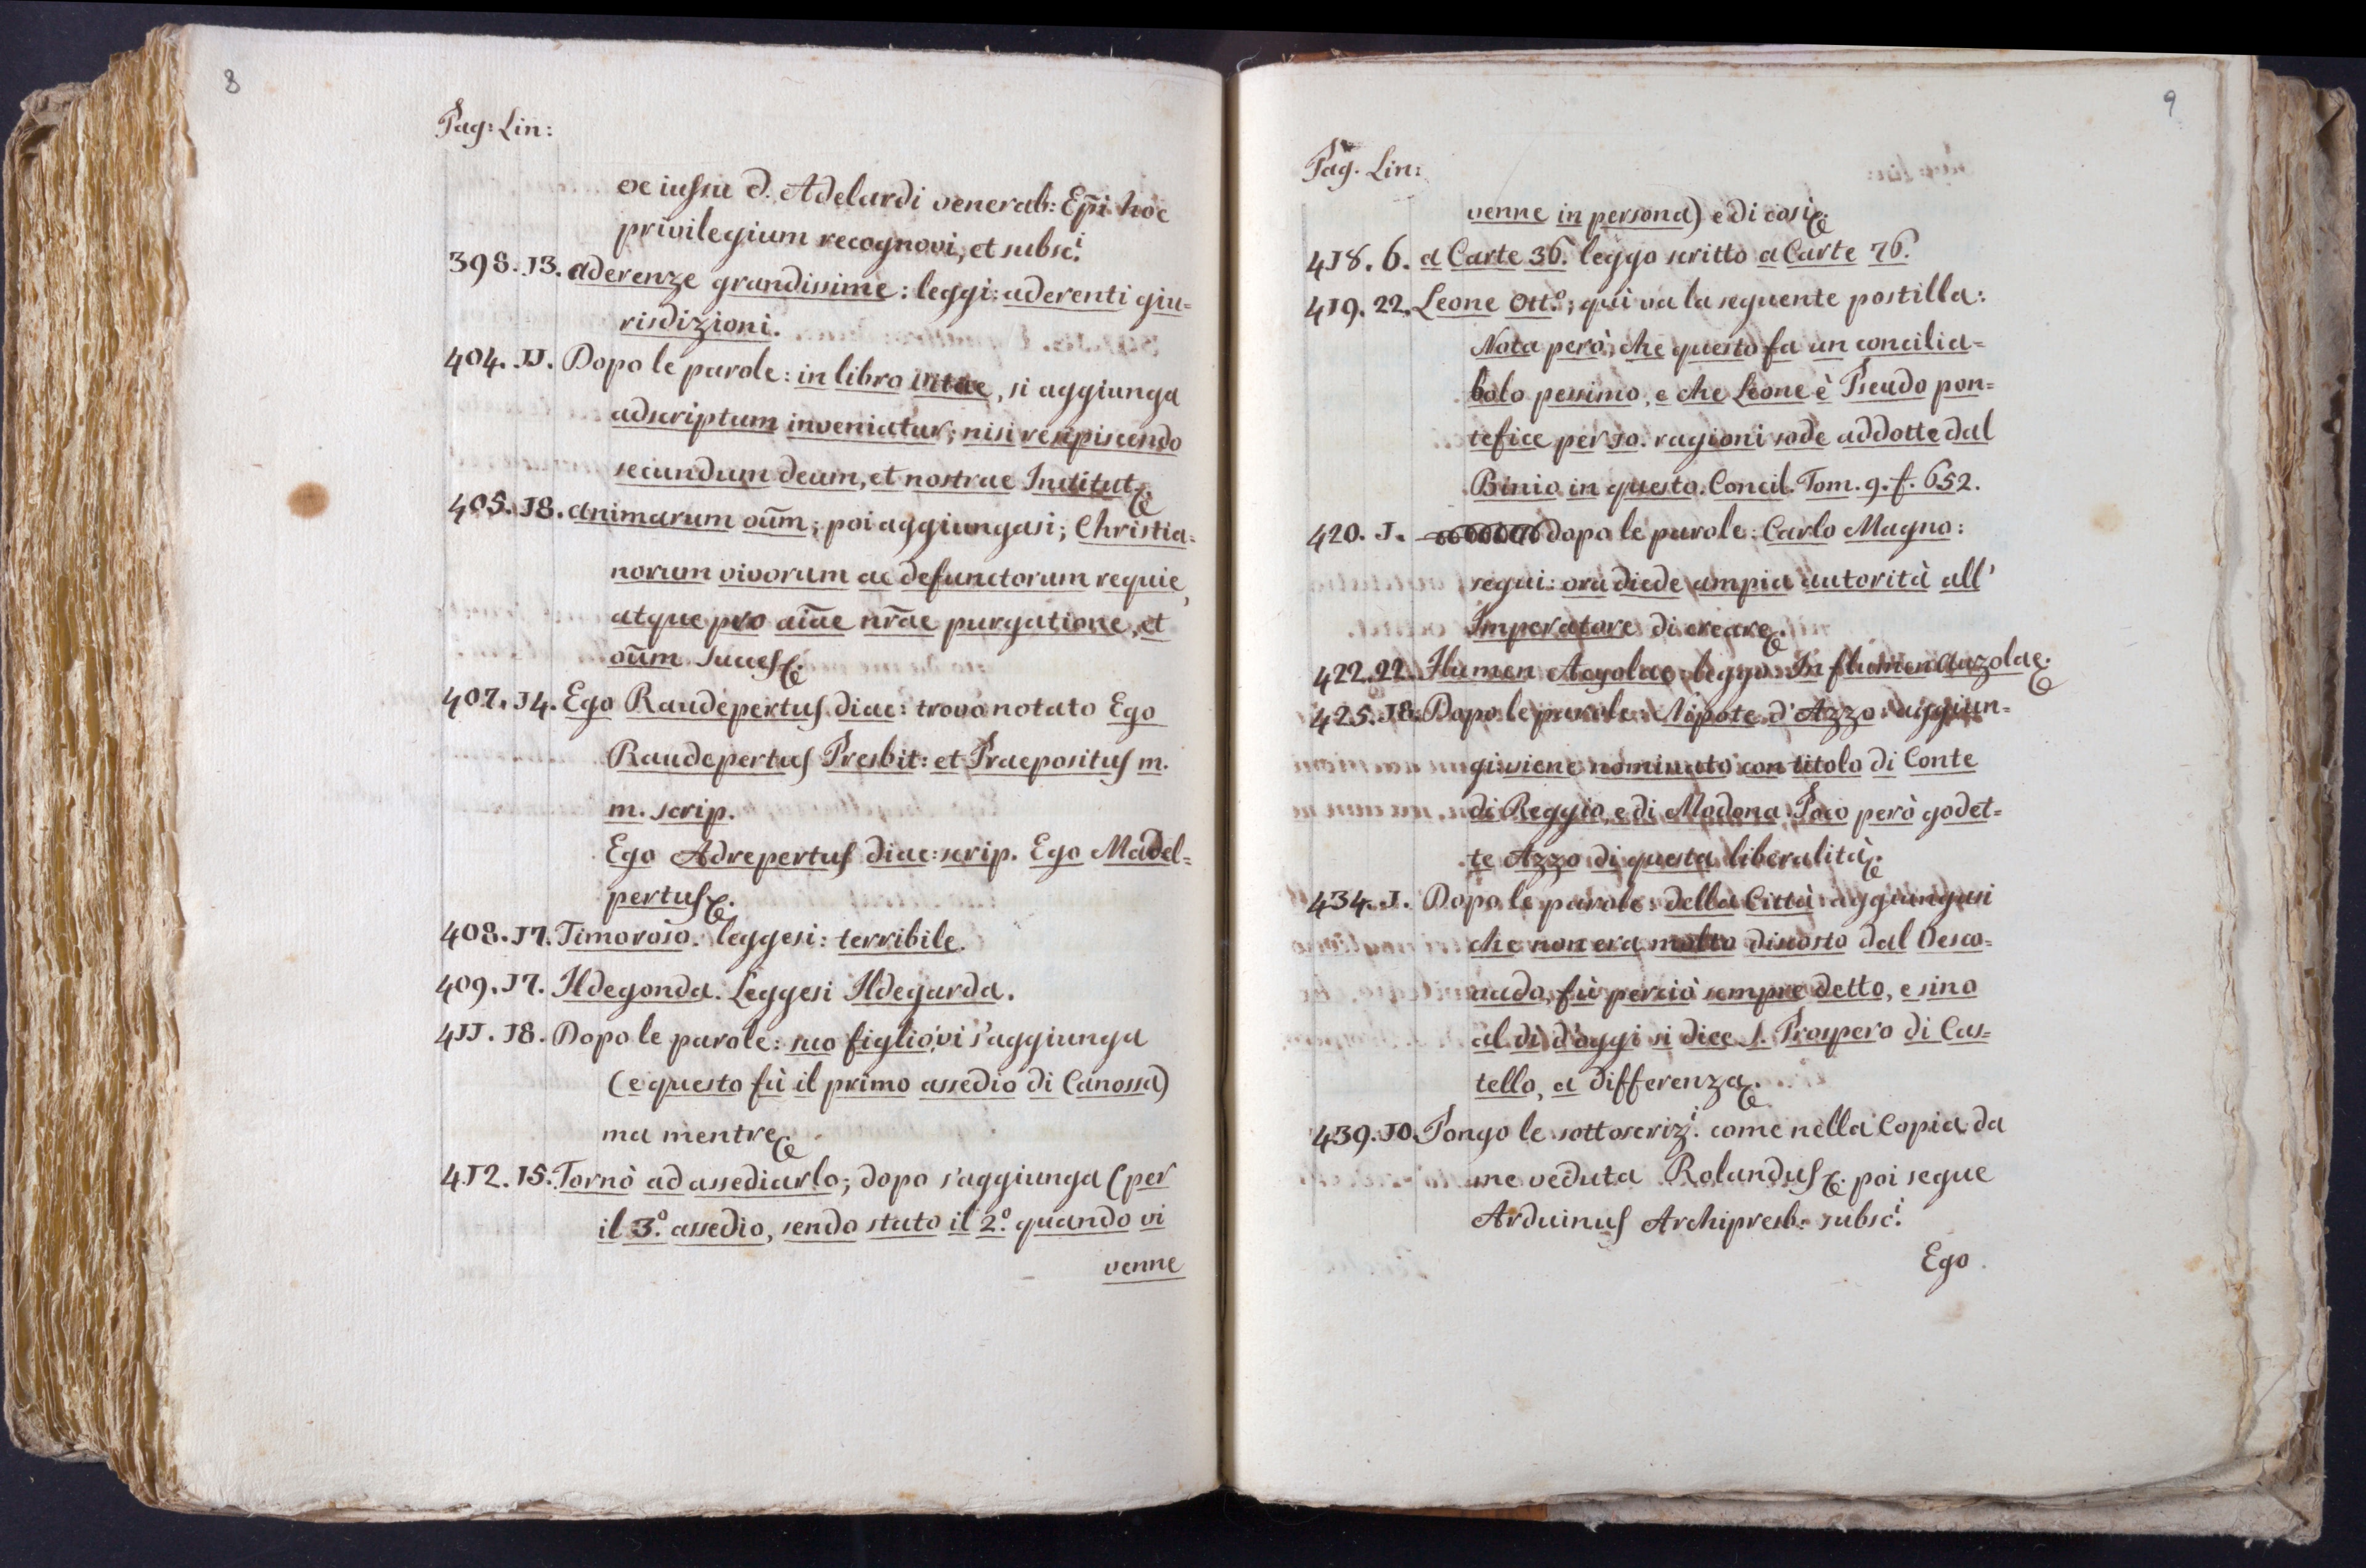 8
Pag: Lin:
ex iussu d. Adelardi venerab: Epi̅ hoc
privilegium recognovi, et subsc.i
398. 13. aderenze grandissime: leggi: aderenti giu=
risdizioni.
404. 11. Dopo le parole: in libro vitae, si aggiunga
adscriptum inveniatur; nisi resipiscendo
secundum deum, et nostrae Institut &.
405. 18. animarum oum̅; poi aggiungasi; Christia=
norum vivorum ac defunctorum requie,
atque pro aia̅e nra̅e purgatione, et
ou̅m succes &.
407. 14. Ego Raudepertus diac: trovo notato Ego
Raudepertus Presbit: et Praepositus m.
m. scrip.
Ego Adrepertus diac: scrip. Ego Madel=
pertus &.
408. 17. Timoroso. leggesi: terribile.
409. 17. Ildegonda. Leggesi Ildegarda.
411. 18. Dopo le parole: suo figlio, vi s'aggiunga
(e questo fù il primo assedio di Canossa)
ma mentre &.
412. 15. Tornò ad assediarlo; dopo s'aggiunga (per
il 3.o assedio, sendo stato il 2.o quando vi
venne
9
Pag. Lin:
venne in persona) e di così &.
418. 6. a Carte 36. leggo scritto a Carte 76.
419. 22. Leone Ott.o; qui va la seguente postilla:
Nota però, che questo fa un concilia=
bolo pessimo, e che Leone è Pseudo pon=
tefice per 10. ragioni sode addotte dal
Binio in questo Concil. Tom. 9. f. 652.
420. 1. dopo le parole: Carlo Magno:
segui: ora diede ampia autorità all'
Imperatore di creare &.
422. 22. Flumen Aeyolae leggo: In flumen Auzolae &.
425. 18. Dopo le parole: Nipote d'Azzo: aggiun=
gi: viene nominato con titolo di Conte
di Reggio, e di Modona. Poco però godet=
te Azzo di questa liberalità &.
434. 1. Dopo le parole: della Città: aggiungasi
che non era molto discosto dal Vesco=
uado, fù perciò sempre detto, e sino
al dì d'oggi si dice S. Prospero di Cas=
tello, a differenza &.
439. 10. Pongo le sottoscriz.i come nella Copia da
me veduta Rolandus &. poi segue
Arduinus Archipresb: subsc.i
Ego